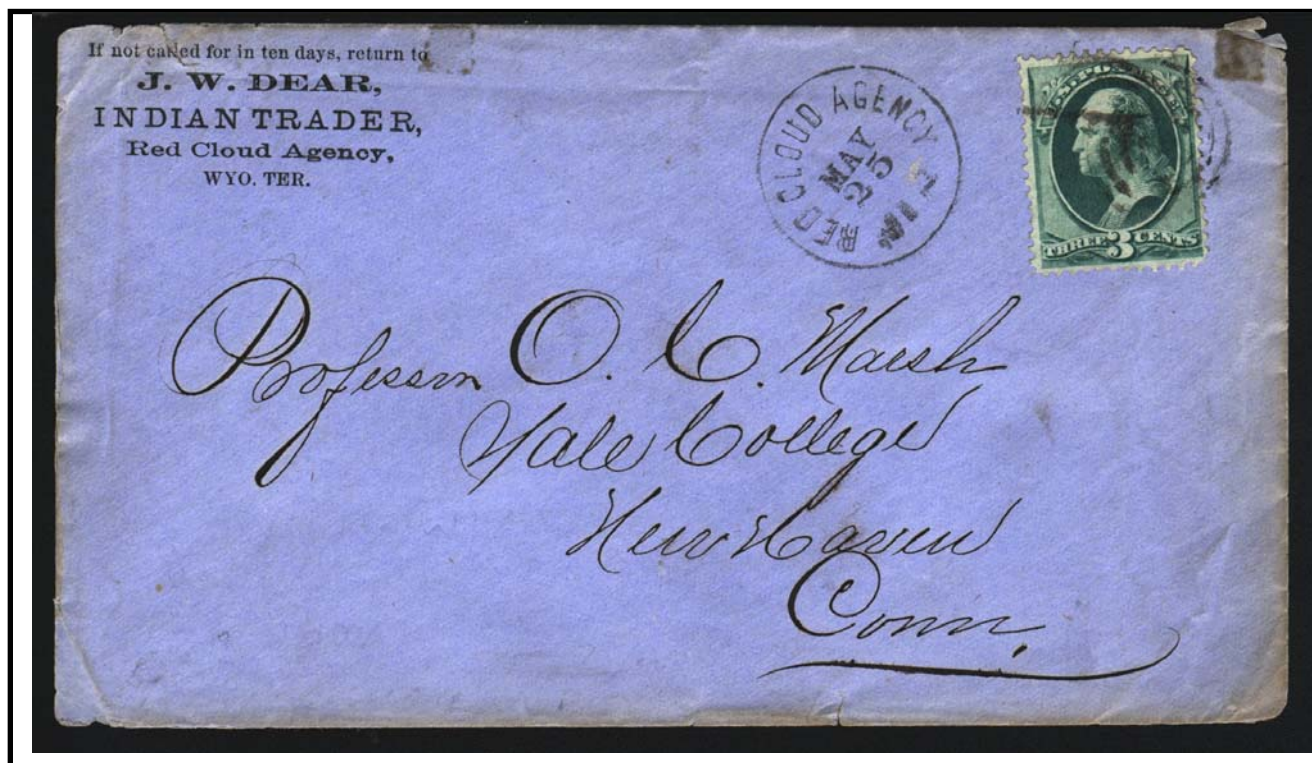 If not called for in ten days, return to
J. W. DEAR,
INDIAN TRADER,
Red Cloud Agency,
WYO. TER.
RED CLOUD AGENCY
MAY
25
THREE 3 CENTS
Professor O. C. Marsh
Yale College
New Haven
Conn.